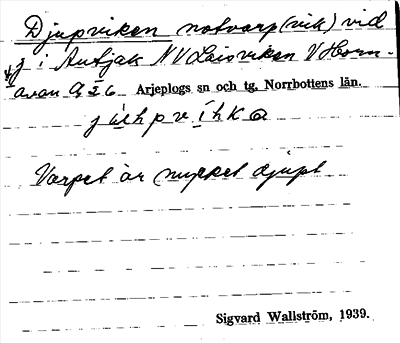 Djupviken notvarp (vik) vid
j i Autjak N V Laisviken V Horn-
avan Arjeplogs sn och tg, Norrbottens län.
Varpet är mycket djupt
Sigvard Wallström, 1939.